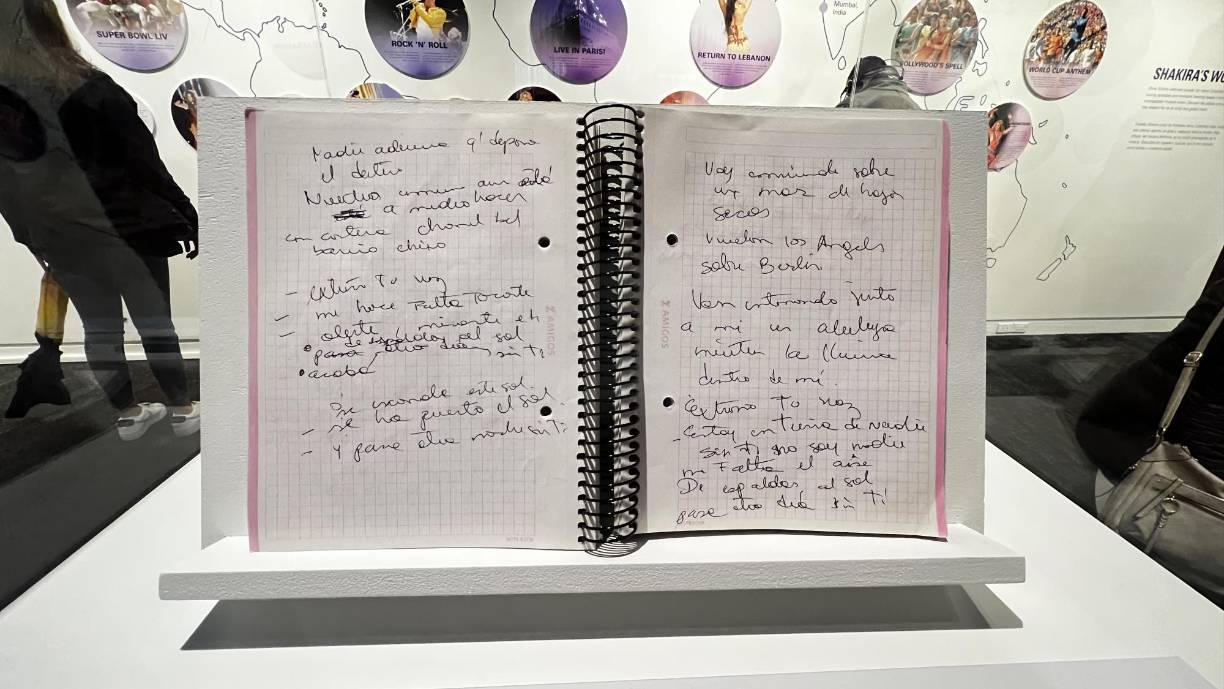 SUPER BOWL LIV
ROCK 'N' ROLL
LIVE IN PARIS!
RETURN TO LEBANON
Mumbai,
India
BOLLYWOOD'S SPELL
WORLD CUP ANTHEM
SHAKIRA'S WO
Nadie q' depara
el destino
Nuestro aun está
a medio hacer
con
barrio chino
- extraño tu voz
- me hace Falta Tocarte
- olerte, mirarte en
• de espaldas al sol
pasa otro día sin ti
• acaba
Se esconde este sol
- se ha puesto el sol
- y pasa otra noche sin Ti
AMIGOS
Voy caminando sobre
un mar de hojas
secas
Vuelan los Angeles
sobre Berlin
Van entonando junto
a mi un aleluya
mientras la lluvia
dentro de mi.
Extraño Tu voz
- Estoy en tierra de Nadie
sin Ti no soy nadie
me Falta el aire
De espaldas al sol
pasa otro día sin Ti
AMIGOS